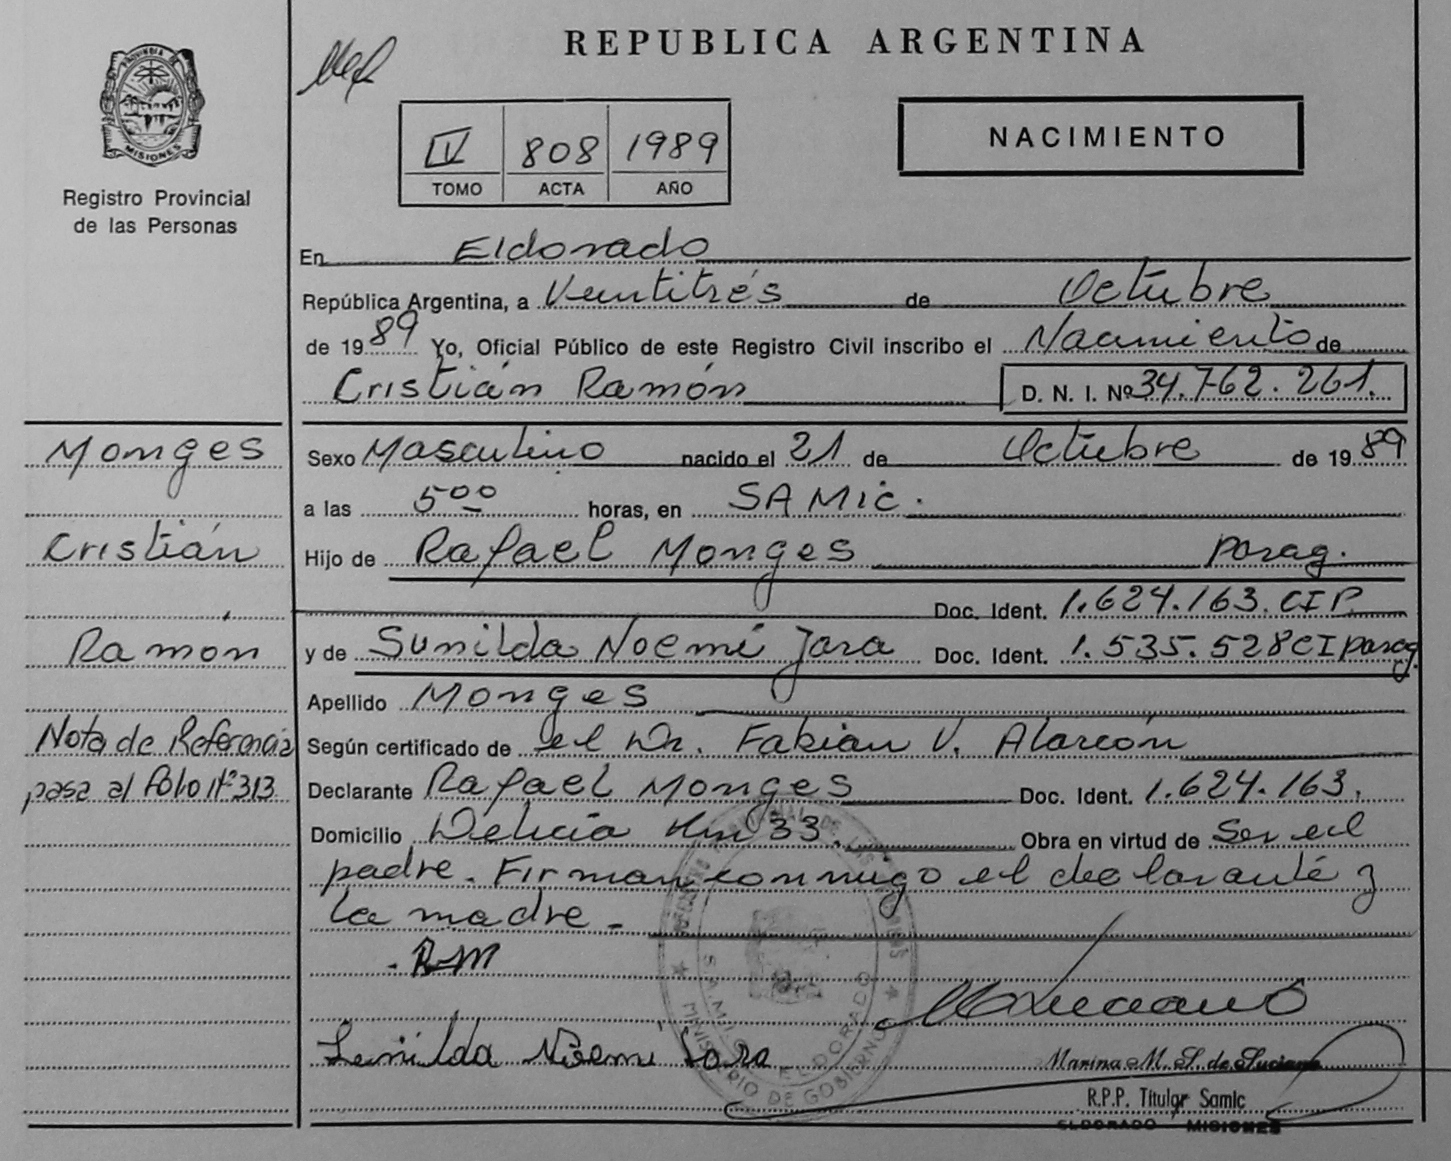 REPUBLICA ARGENTINA
PROVINCIA DE
MISIONES
Registro Provincial
de las Personas
IV 808 1989
TOMO ACTA AÑO
NACIMIENTO
En Eldorado
República Argentina, a Veintitrés de Octubre
de 1989 Yo, Oficial Público de este Registro Civil inscribo el Nacimiento de
Cristián Ramón D. N. I. Nº 34.762.261.
Monges
Cristián
Ramón
Nota de Referencia
pasa al Folio Nº 313
Sexo Masculino nacido el 21 de Octubre de 1989
a las 5 00 horas, en SAMic.
Hijo de Rafael Monges parag.
Doc. Ident. 1.624.163. CIP
y de Sunilda Noemí Jara Doc. Ident. 1.535.528 CI parag.
Apellido Monges
Según certificado de el Dr. Fabian V. Alarcón
Declarante Rafael Monges Doc. Ident. 1.624.163.
Domicilio Delicia Km 33. Obra en virtud de Ser el
padre. Firman conmigo el declarante y
la madre.-
RM
Noemi Jara
S.A.M.I.C. ELDORADO
MINISTERIO DE GOBIERNO
Marina M. S. de Luciano
R.P.P. Titular Samic
ELDORADO MISIONES